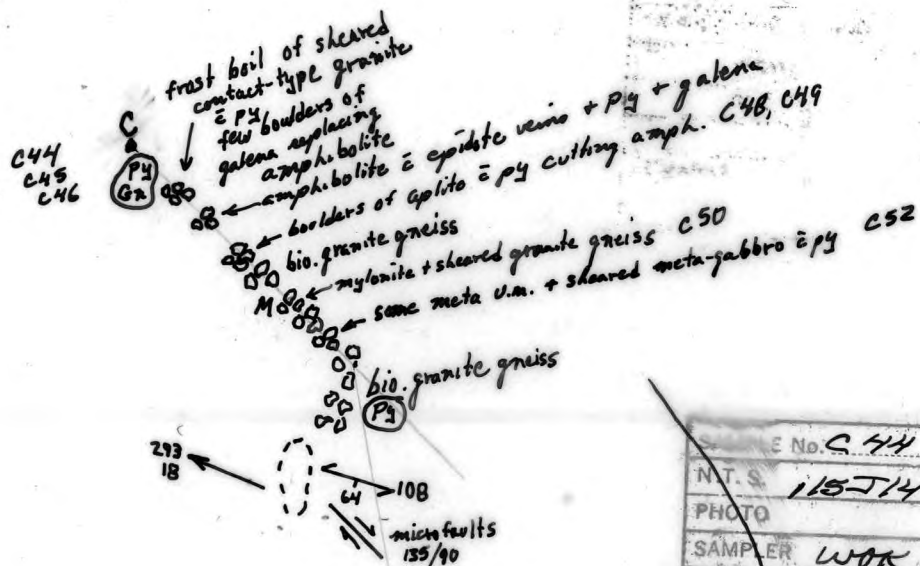 frost boil of sheared
contact-type granite
c̄ py
few boulders of
galena replacing
amphibolite
C
C44
C45
C46
Py
Gn
amphibolite c̄ epidote veins + Py + galena
boulders of aplite c̄ py cutting amph. C48, C49
bio. granite gneiss
mylonite + sheared granite gneiss C50
M
some meta u.m. + sheared meta-gabbro c̄ py C52
bio. granite gneiss
Py
293
18
108
64
microfaults
135/90
E No. C 44
N.T.S. 115J14
PHOTO
SAMPLER